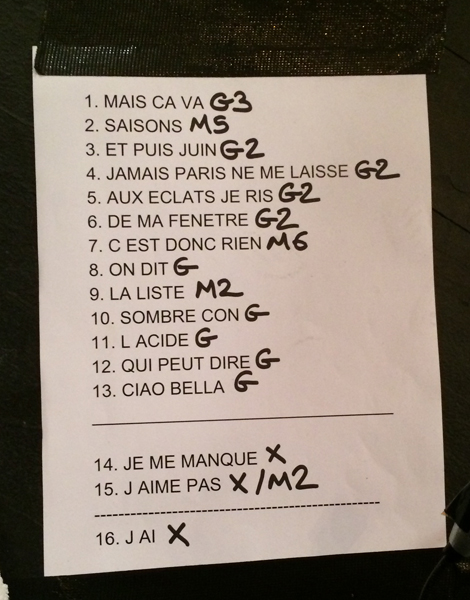 1. MAIS CA VA G3
2. SAISONS M5
3. ET PUIS JUIN G2
4. JAMAIS PARIS NE ME LAISSE G2
5. AUX ECLATS JE RIS G2
6. DE MA FENETRE G2
7. C EST DONC RIEN M6
8. ON DIT G
9. LA LISTE M2
10. SOMBRE CON G
11. L ACIDE G
12. QUI PEUT DIRE G
13. CIAO BELLA G
14. JE ME MANQUE X
15. J AIME PAS X/M2
16. J AI X